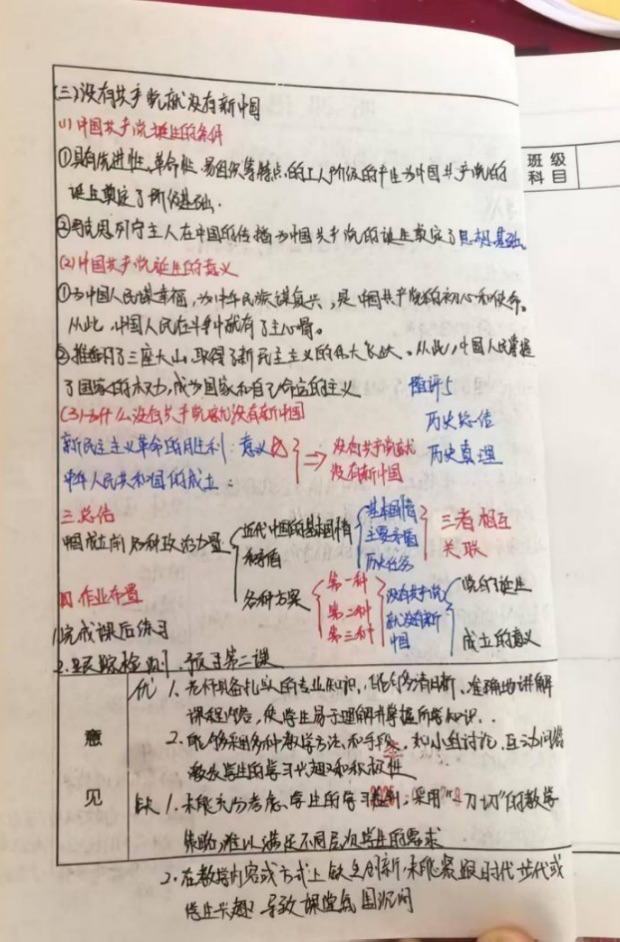 (三)没有共产党就没有新中国
(1)中国共产党诞生的条件
①具有先进性、革命性、易组织等特点的工人阶级的产生为中国共产党的
诞生奠定了阶级基础.
②马克思列宁主义在中国的传播为中国共产党的诞生奠定了思想基础.
(2)中国共产党诞生的意义
①为中国人民谋幸福,为中华民族谋复兴,是中国共产党的初心和使命。
从此,中国人民在斗争中就有了主心骨。
②推翻了三座大山,取得了新民主主义的伟大飞跃。从此,中国人民掌握
了国家的权力,成为国家和自己命运的主人
(3)为什么没有共产党就没有新中国
历史总结
新民主主义革命的胜利:意义
没有共产党就
没有新中国
历史真理
中华人民共和国的成立:
三.总结
中国成立前各种政治力量
近代中国的基本国情
和矛盾
基本国情
主要矛盾
历史任务
三者相互
关联
各种方案
第一种
第二种
第三种
没有共产党
就没有新
中国
党的诞生
成立的意义
四.作业布置
1.完成课后练习
2.跟踪检测,预习第二课
意见
优 1.老师具备扎实的专业知识,能够清晰、准确地讲解
课程内容,使学生易于理解并掌握所学知识.
2.能够采用多种教学方法和手段,如小组讨论,互动问答
激发学生的学习兴趣和积极性
缺 1.未能充分考虑学生的学习,采用"一刀切"的教学
策略,难以满足不同层次学生的要求
2.在教学内容或方式上缺乏创新,未能紧跟时代步伐或
学生兴趣,导致课堂氛围沉闷
班级
科目